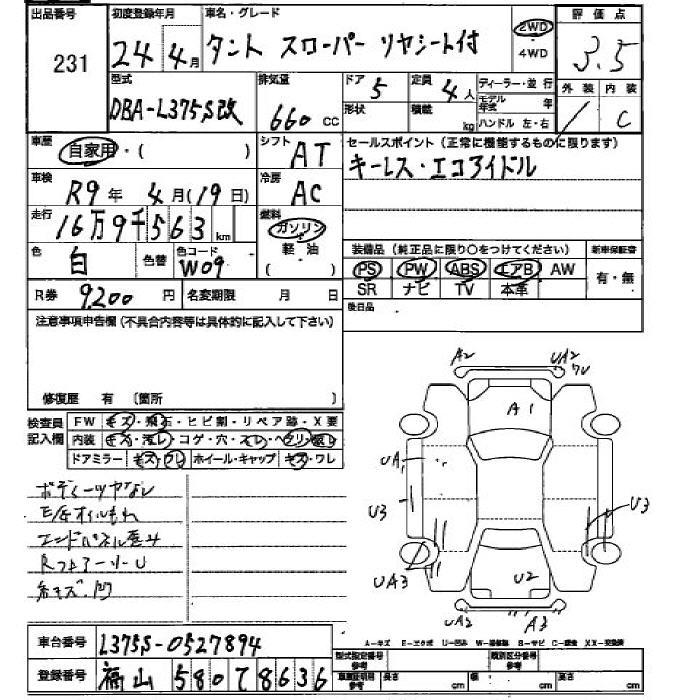 出品番号
231
初度登録年月
24年4月
車名・グレード
タント スローパー リヤシート付
2WD
4WD
評価点
3.5
外装 内装
C
型式
DBA-L375S改
排気量
660 cc
ドア 5
形状
定員 4人
積載 kg
ディーラー・並行
モデル年式 年
ハンドル 左・右
車歴
自家用・( )
シフト
AT
セールスポイント(正常に機能するものに限ります)
キーレス・エコアイドル
車検
R9年4月(19日)
冷房
AC
走行
16万9千563km
燃料
ガソリン
軽油
( )
色
白
色替
色コード
W09
装備品(純正品に限り○をつけてください)
新車保証書
PS PW ABS エアB AW
SR ナビ TV 本革
有・無
R券 9200円
名変期限 月 日
後日品
注意事項申告欄(不具合内容等は具体的に記入して下さい)
修復歴 有 〔箇所 〕
検査員
記入欄
FW キズ・飛石・ヒビ割・リペア跡・X要
内装 キズ・汚レ・コゲ・穴・スレ・ヘタリ・
ドアミラー キズ・ワレ ホイール・キャップ キズ・ワレ
ボデーツヤなし
E/Gオイルもれ
エンドパネル歪み
RフェアーリーU
キズ凹
A2
UA2
ワレ
A1
UA1
U3
U3
UA3
U2
UA2
A3
A-キズ E-エクボ U-凹み W-補修跡 S-サビ C-腐食 XX-交換済
車台番号
L375S-0527894
登録番号
福山 580 て 8636
型式指定番号
参考
類別区分番号
参考
車庫証明用
参考
長さ cm
幅 cm
高さ cm